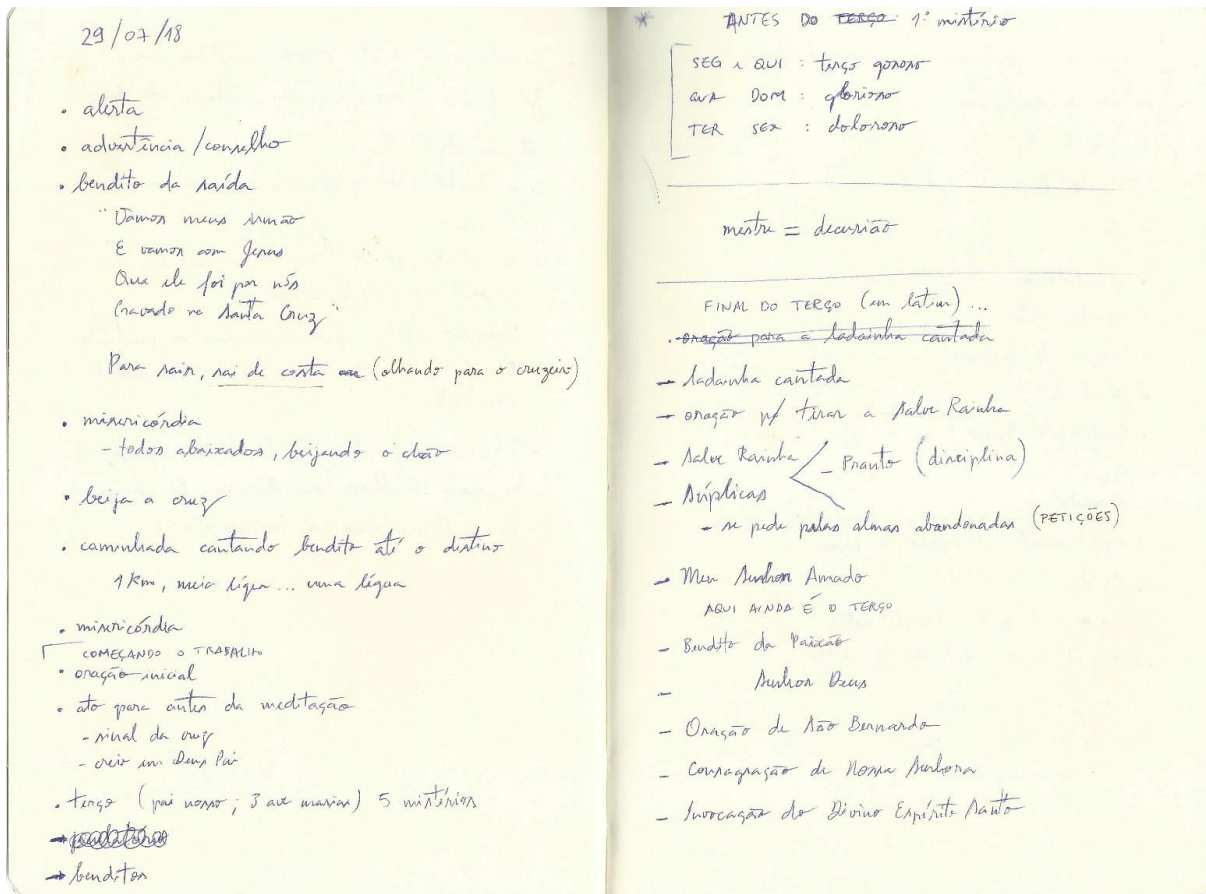 29/07/18
• alerta
• advertência/conselho
• bendito da saída
"Vamos meus irmão
E vamos com Jesus
Que ele foi por nós
Cravado na Santa Cruz"
Para sair, sai de costa (olhando para o cruzeiro)
• misericórdia
- todos abaixados, beijando o chão
• beija a cruz
• caminhada cantando bendito até o destino
1 km, meia légua... uma légua
• misericórdia
COMEÇANDO O TRABALHO
• oração inicial
• ato para antes da meditação
- sinal da cruz
- creio em Deus Pai
• terço (pai nosso; 3 ave marias) 5 mistérios
→ benditos
* ANTES DO TERÇO: 1º mistério
SEG e QUI : terço gozoso
QUA DOM : glorioso
TER SEX : doloroso
mestre = decurião
FINAL DO TERÇO (em latim)...
• oração para a ladainha cantada
- ladainha cantada
- oração p/ tirar a Salve Rainha
- Salve Rainha - Pranto (disciplina)
- Súplicas
- se pede pelas almas abandonadas (PETIÇÕES)
- Meu Senhor Amado
AQUI AINDA É O TERÇO
- Bendito da Paixão
- Senhor Deus
- Oração de São Bernardo
- Consagração de Nossa Senhora
- Invocação do Divino Espírito Santo